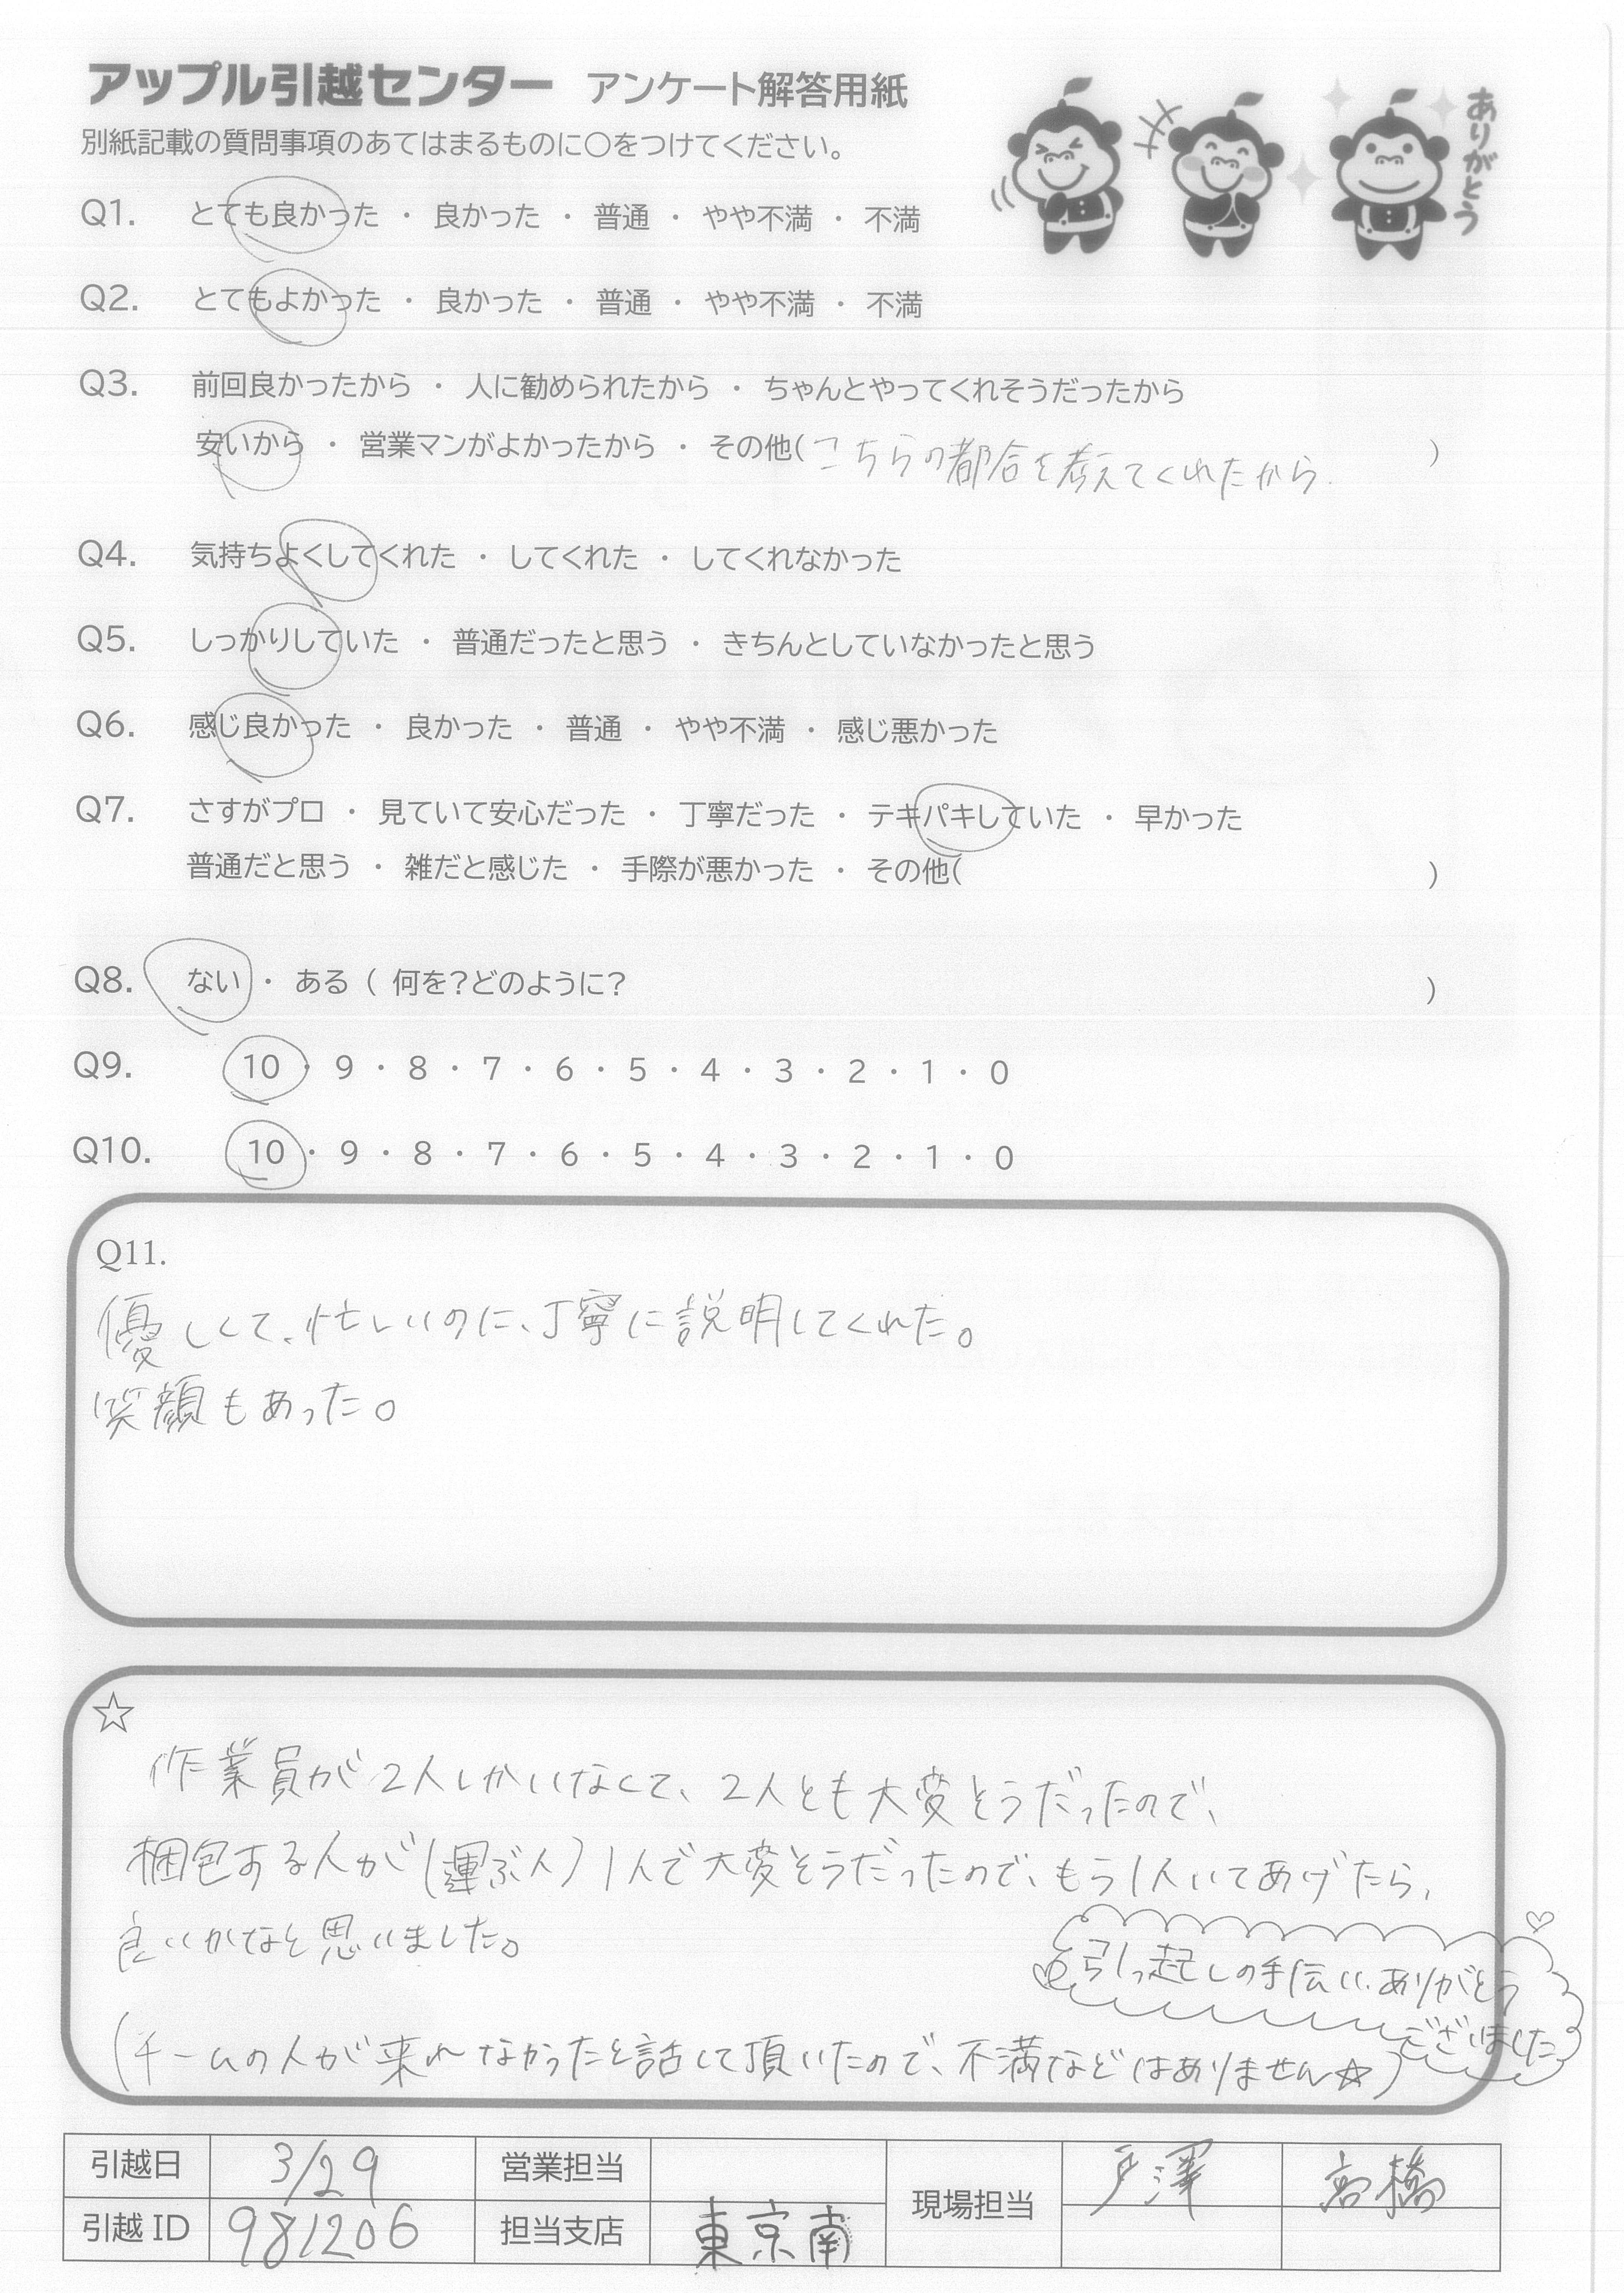 アップル引越センター アンケート解答用紙
別紙記載の質問事項のあてはまるものに○をつけてください。
ありがとう
Q1. とても良かった ・ 良かった ・ 普通 ・ やや不満 ・ 不満
Q2. とてもよかった ・ 良かった ・ 普通 ・ やや不満 ・ 不満
Q3. 前回良かったから ・ 人に勧められたから ・ ちゃんとやってくれそうだったから
安いから ・ 営業マンがよかったから ・ その他(こちらの都合を考えてくれたから. )
Q4. 気持ちよくしてくれた ・ してくれた ・ してくれなかった
Q5. しっかりしていた ・ 普通だったと思う ・ きちんとしていなかったと思う
Q6. 感じ良かった ・ 良かった ・ 普通 ・ やや不満 ・ 感じ悪かった
Q7. さすがプロ ・ 見ていて安心だった ・ 丁寧だった ・ テキパキしていた ・ 早かった
普通だと思う ・ 雑だと感じた ・ 手際が悪かった ・ その他( )
Q8. ない ・ ある ( 何を?どのように? )
Q9. 10 ・ 9 ・ 8 ・ 7 ・ 6 ・ 5 ・ 4 ・ 3 ・ 2 ・ 1 ・ 0
Q10. 10 ・ 9 ・ 8 ・ 7 ・ 6 ・ 5 ・ 4 ・ 3 ・ 2 ・ 1 ・ 0
Q11.
優しくて、忙しいのに、丁寧に説明してくれた。
笑顔もあった。
☆
作業員が2人しかいなくて、2人とも大変そうだったので、
梱包する人が(運ぶ人)1人で大変そうだったので、もう1人いてあげたら、
良いかなと思いました。
引っ起しの手伝い、ありがとう
ございました
(チームの人が来れなかったと話して頂いたので、不満などはありません☆)
引越日 3/29 営業担当 現場担当 戸澤 高橋
引越 ID 981206 担当支店 東京南